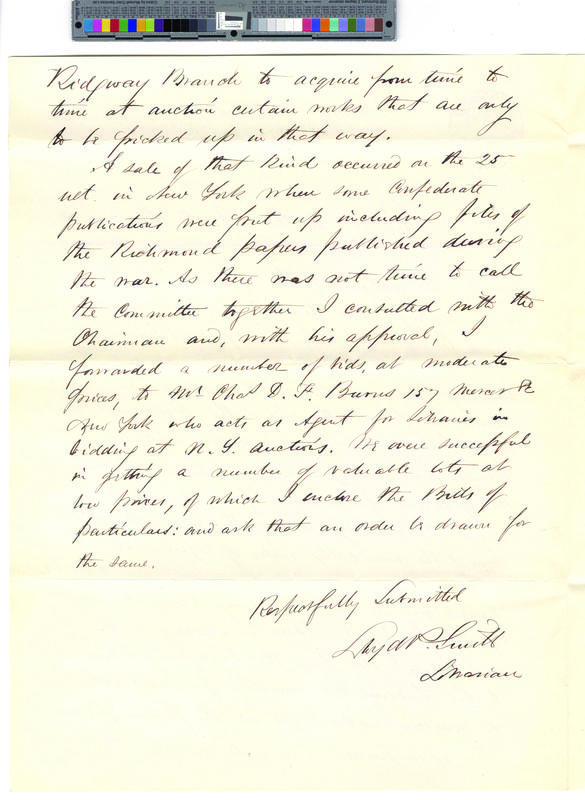 Ridgway Branch to acquire from time to
time at auction certain works that are only
to be picked up in that way.
A sale of that kind occurred on the 25
ult. in New York when some Confederate
publications were put up including files of
the Richmond papers published during
the war. As there was not time to call
the Committee together I consulted with the
Chairman and, with his approval, I
forwarded a number of bids, at moderate
prices, to Mr Chas D. F. Burns 157 Mercer St
New York who acts as Agent for Libraries in
bidding at N. Y. auctions. We were successful
in getting a number of valuable lots at
low prices, of which I enclose the Bills of
particulars: and ask that an order be drawn for
the same.
Respectfully Submitted
Lloyd P. Smith
Librarian